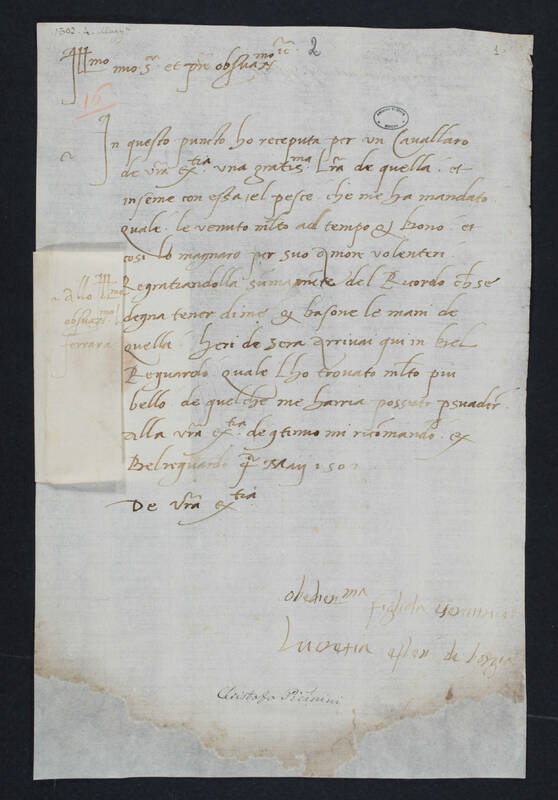 1502. 4. Magg°
2
1.
Ill^mo mio S^r et pre obsua^mo etc.
16
In questo puncto ho receputa per un Cavallaro
de vra ex^tia una gratis^ma lra de quella: et
inseme con essa: el pesce che me ha mandato
quale le venuto mlto ad tempo & bono: et
cosi lo magnaro per suo amore volenteri
Regratiandolla sumamte del Ricordo ch se
degna tener di me, & basone le mani de
quella: Heri de sera arrivai qui in bel
Reguardo quale lho trovato mlto piu
bello de quel che me harria possuto psuadir
Alla vra ex^tia de qtinuo mi ricomando: ex
Belreguardo Maij 1502
De vra ex^tia
Allo Ill^mo
obsua^mo
ferrara
obedien^ma figliola
Lucretia de borgia
Christofo Piccinini